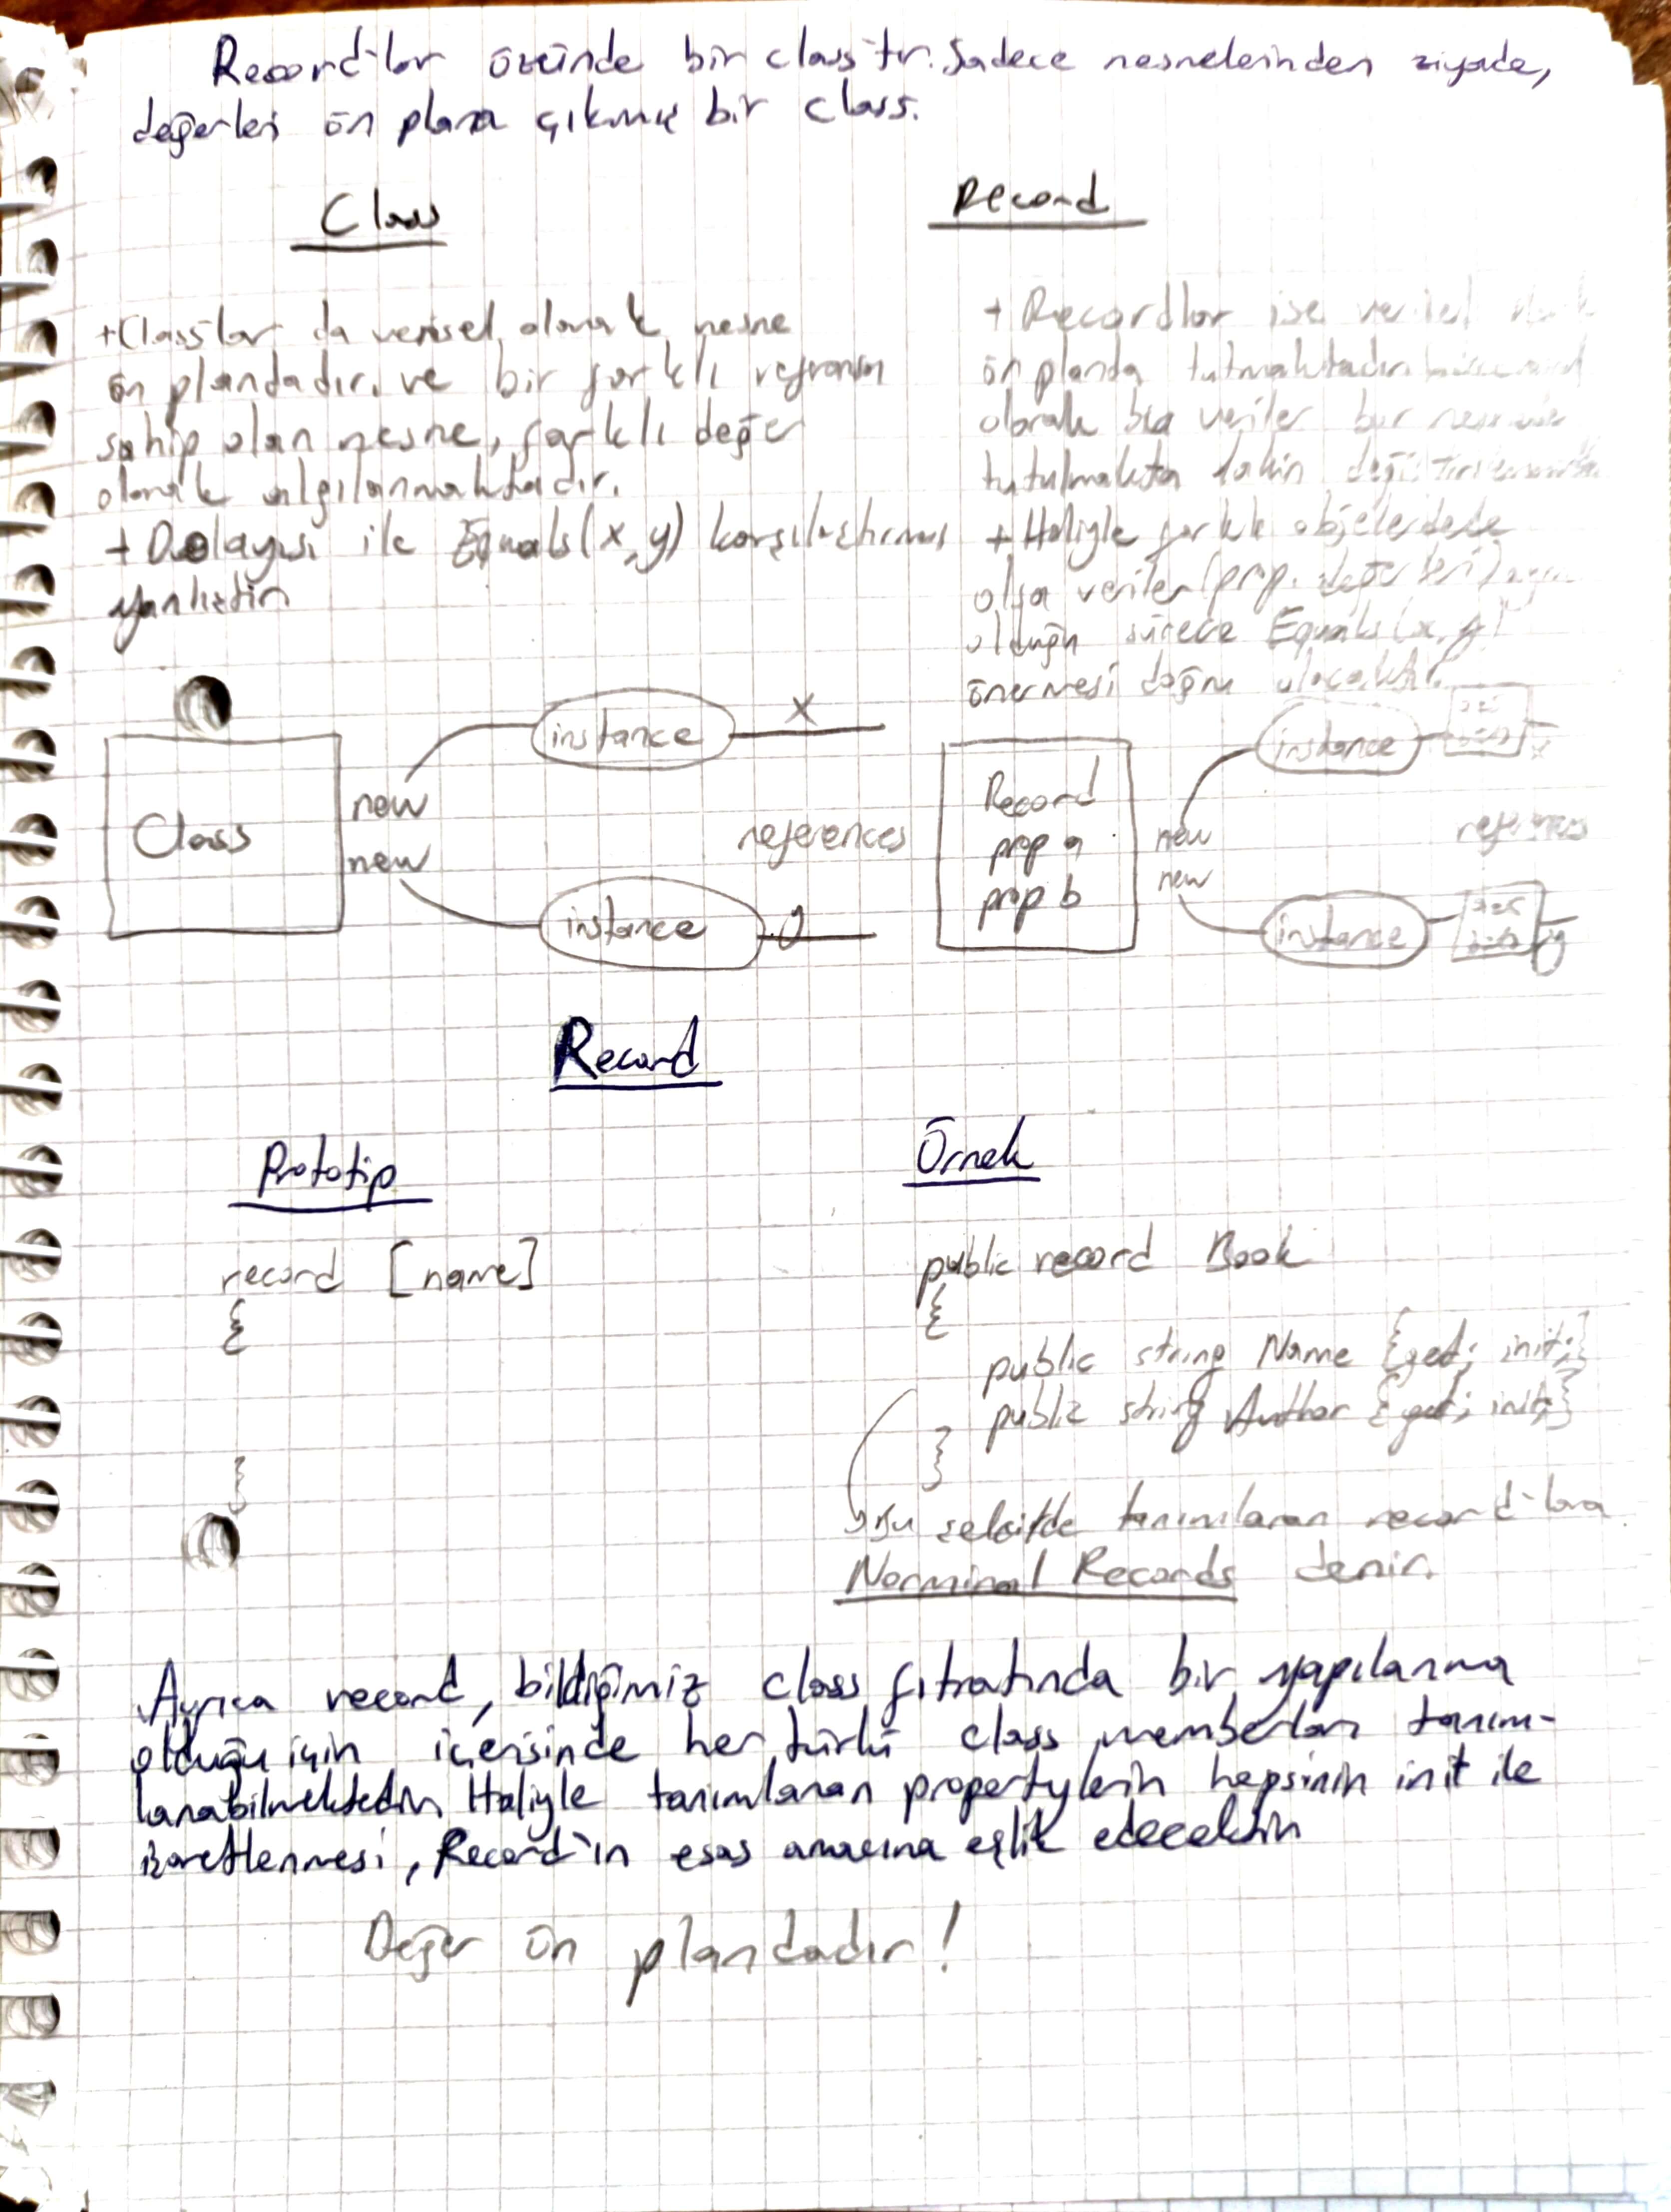 Record'lar özünde bir class'tır. Sadece nesnelerinden ziyade,
değerleri ön plana çıkmış bir class.
Class
+Class'lar da verisel olarak nesne
ön plandadır. ve bir farklı referansa
sahip olan nesne, farklı değer
olarak algılanmaktadır.
+ Dolayısı ile Equals(x,y) karşılaştırması
yanlıştır.
Record
+ Recordlar ise verileri
ön planda tutmaktadır.
olarak bu veriler bir
tutulmakta lakin
+ Haliyle farklı objelerdede
olsa veriler (prop. değerleri)
olduğu sürece Equals(x,y)
önermesi doğru olacaktır.
Class
new
new
instance
x
references
instance
y
Record
prop a
prop b
new
new
instance
x
references
instance
y
Record
Prototip
record [name]
{
}
Örnek
public record Book
{
public string Name {get; init;}
public string Author {get; init;}
}
Bu şekilde tanımlanan record'lara
Norminal Records denir.
Ayrıca record, bildiğimiz class fıtratında bir yapılanma
olduğu için içerisinde her türlü class memberları tanım-
lanabilmektedir. Haliyle tanımlanan propertylerin hepsinin init ile
işaretlenmesi, Record'ın esas amacına eşlik edecektir.
Değer ön plandadır!